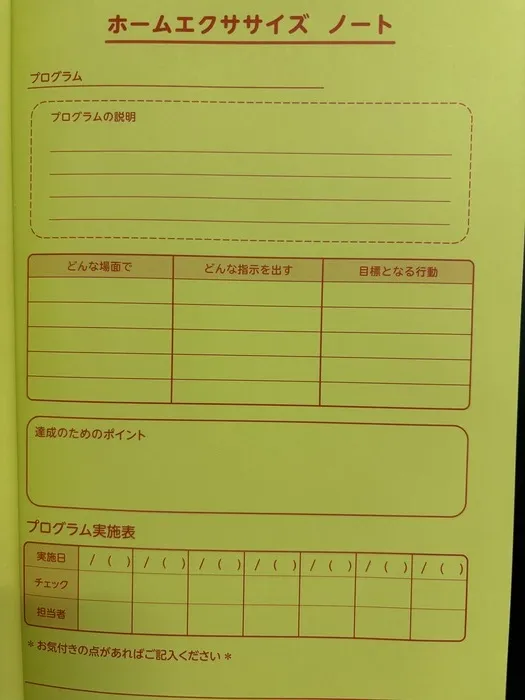 ホームエクササイズ ノート
プログラム
プログラムの説明
どんな場面で どんな指示を出す 目標となる行動
達成のためのポイント
プログラム実施表
実施日 / ( ) / ( ) / ( ) / ( ) / ( ) / ( ) / ( )
チェック
担当者
*お気付きの点があればご記入ください*